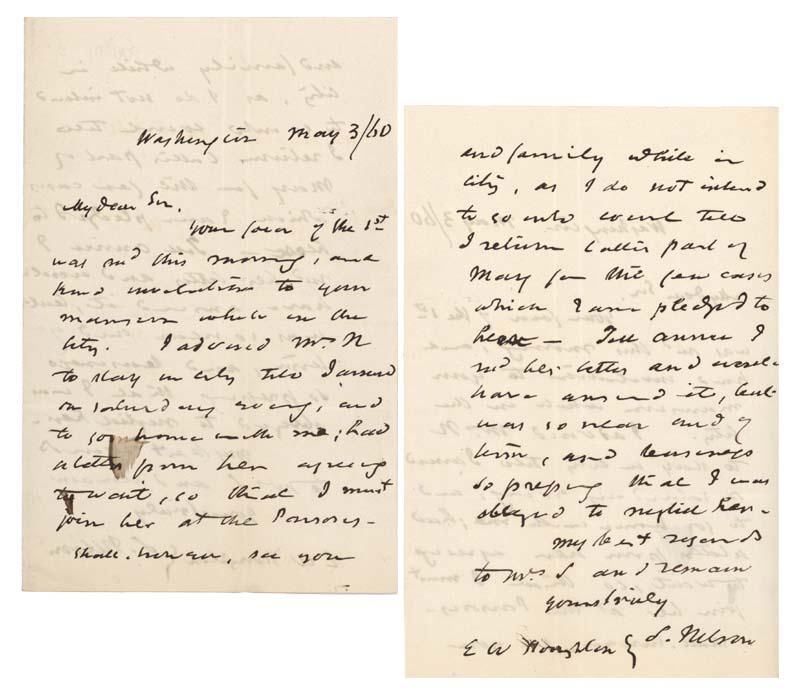 Washington May 3/60
My dear Sir,
Your favor of the 1st
was recd this morning, and
kind invitation to your
mansion while in the
city. I advised Mrs N
to stay in city till I arrived
on Saturday evening, and
to go home with me; had
a letter from her agreeing
to wait, so that I must
join her at the
shall, however, see you
and family while in
city, as I do not intend
to go into court till
I return latter part of
May for the few cases
which I am pledged to
hear — Tell I
recd her letter and would
have answd it, but
was so near end of
term, and business
so pressing that I was
obliged to neglect her —
my best regards
to Mrs and remain
yours truly
E W Houghton S. Nelson